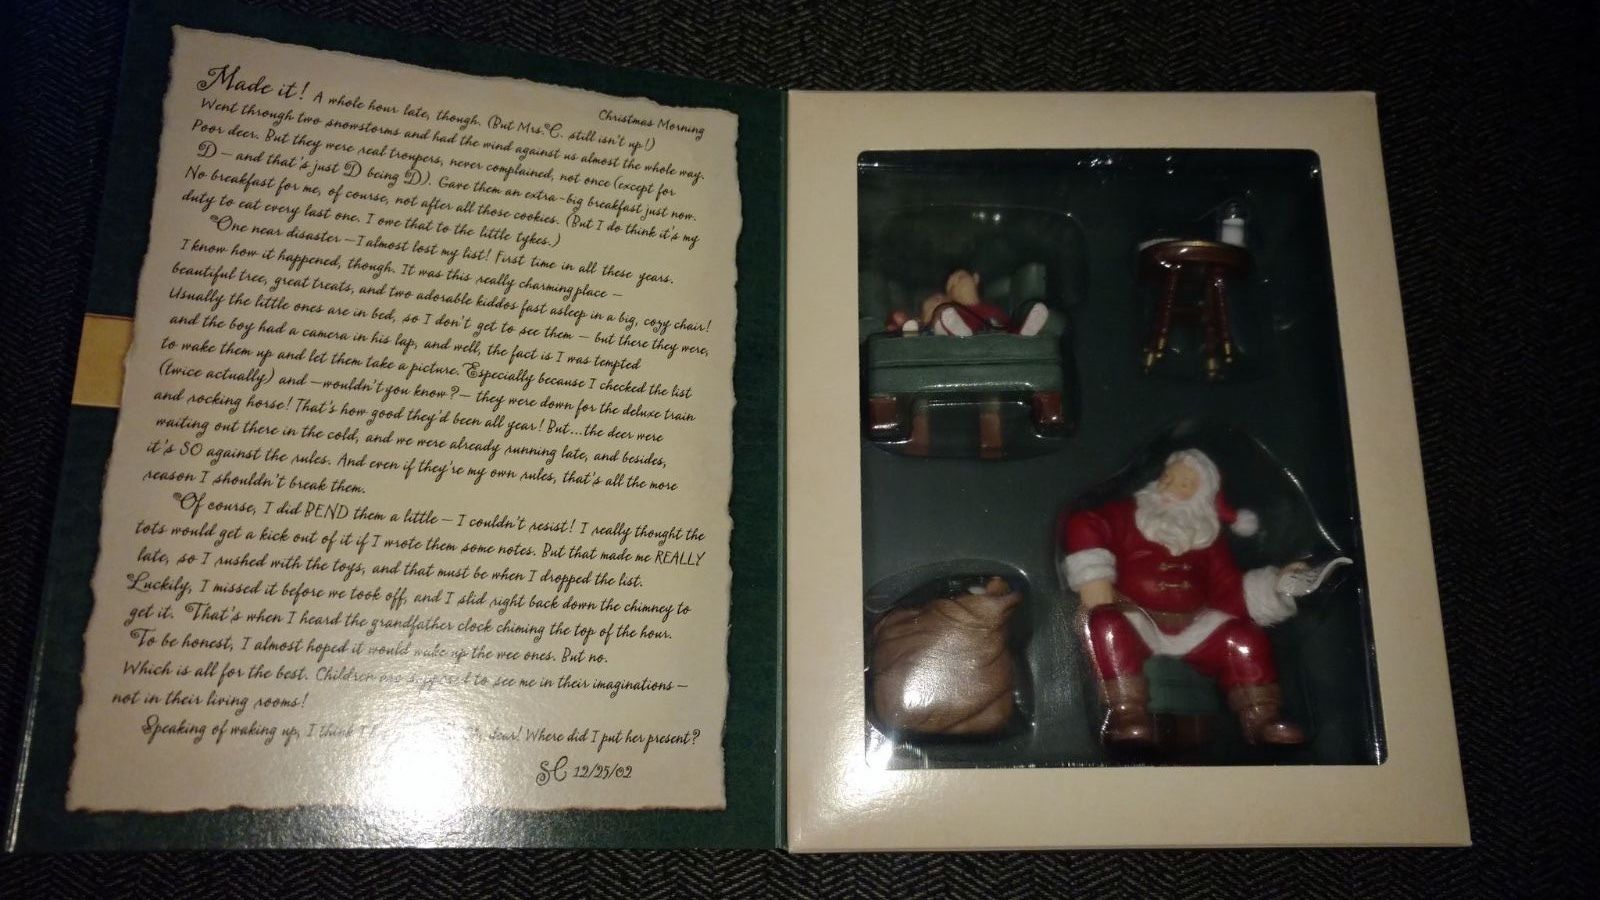 Christmas Morning
Made it! A whole hour late, though. (But Mrs. C. still isn't up!)
Went through two snowstorms and had the wind against us almost the whole way.
Poor deer. But they were real troupers, never complained, not once (except for
D — and that's just D being D). Gave them an extra-big breakfast just now.
No breakfast for me, of course, not after all those cookies. (But I do think it's my
duty to eat every last one. I owe that to the little tykes.)
One near disaster — I almost lost my list! First time in all these years.
I know how it happened, though. It was this really charming place —
beautiful tree, great treats, and two adorable kiddos fast asleep in a big, cozy chair!
Usually the little ones are in bed, so I don't get to see them — but there they were,
and the boy had a camera in his lap, and well, the fact is I was tempted
to wake them up and let them take a picture. Especially because I checked the list
(twice actually) and — wouldn't you know? — they were down for the deluxe train
and rocking horse! That's how good they'd been all year! But... the deer were
waiting out there in the cold, and we were already running late, and besides,
it's SO against the rules. And even if they're my own rules, that's all the more
reason I shouldn't break them.
Of course, I did BEND them a little — I couldn't resist! I really thought the
tots would get a kick out of it if I wrote them some notes. But that made me REALLY
late, so I rushed with the toys, and that must be when I dropped the list.
Luckily, I missed it before we took off, and I slid right back down the chimney to
get it. That's when I heard the grandfather clock chiming the top of the hour.
To be honest, I almost hoped it would wake up the wee ones. But no.
Which is all for the best. Children are supposed to see me in their imaginations —
not in their living rooms!
Speaking of waking up, I think dear! Where did I put her present?
SC 12/25/02